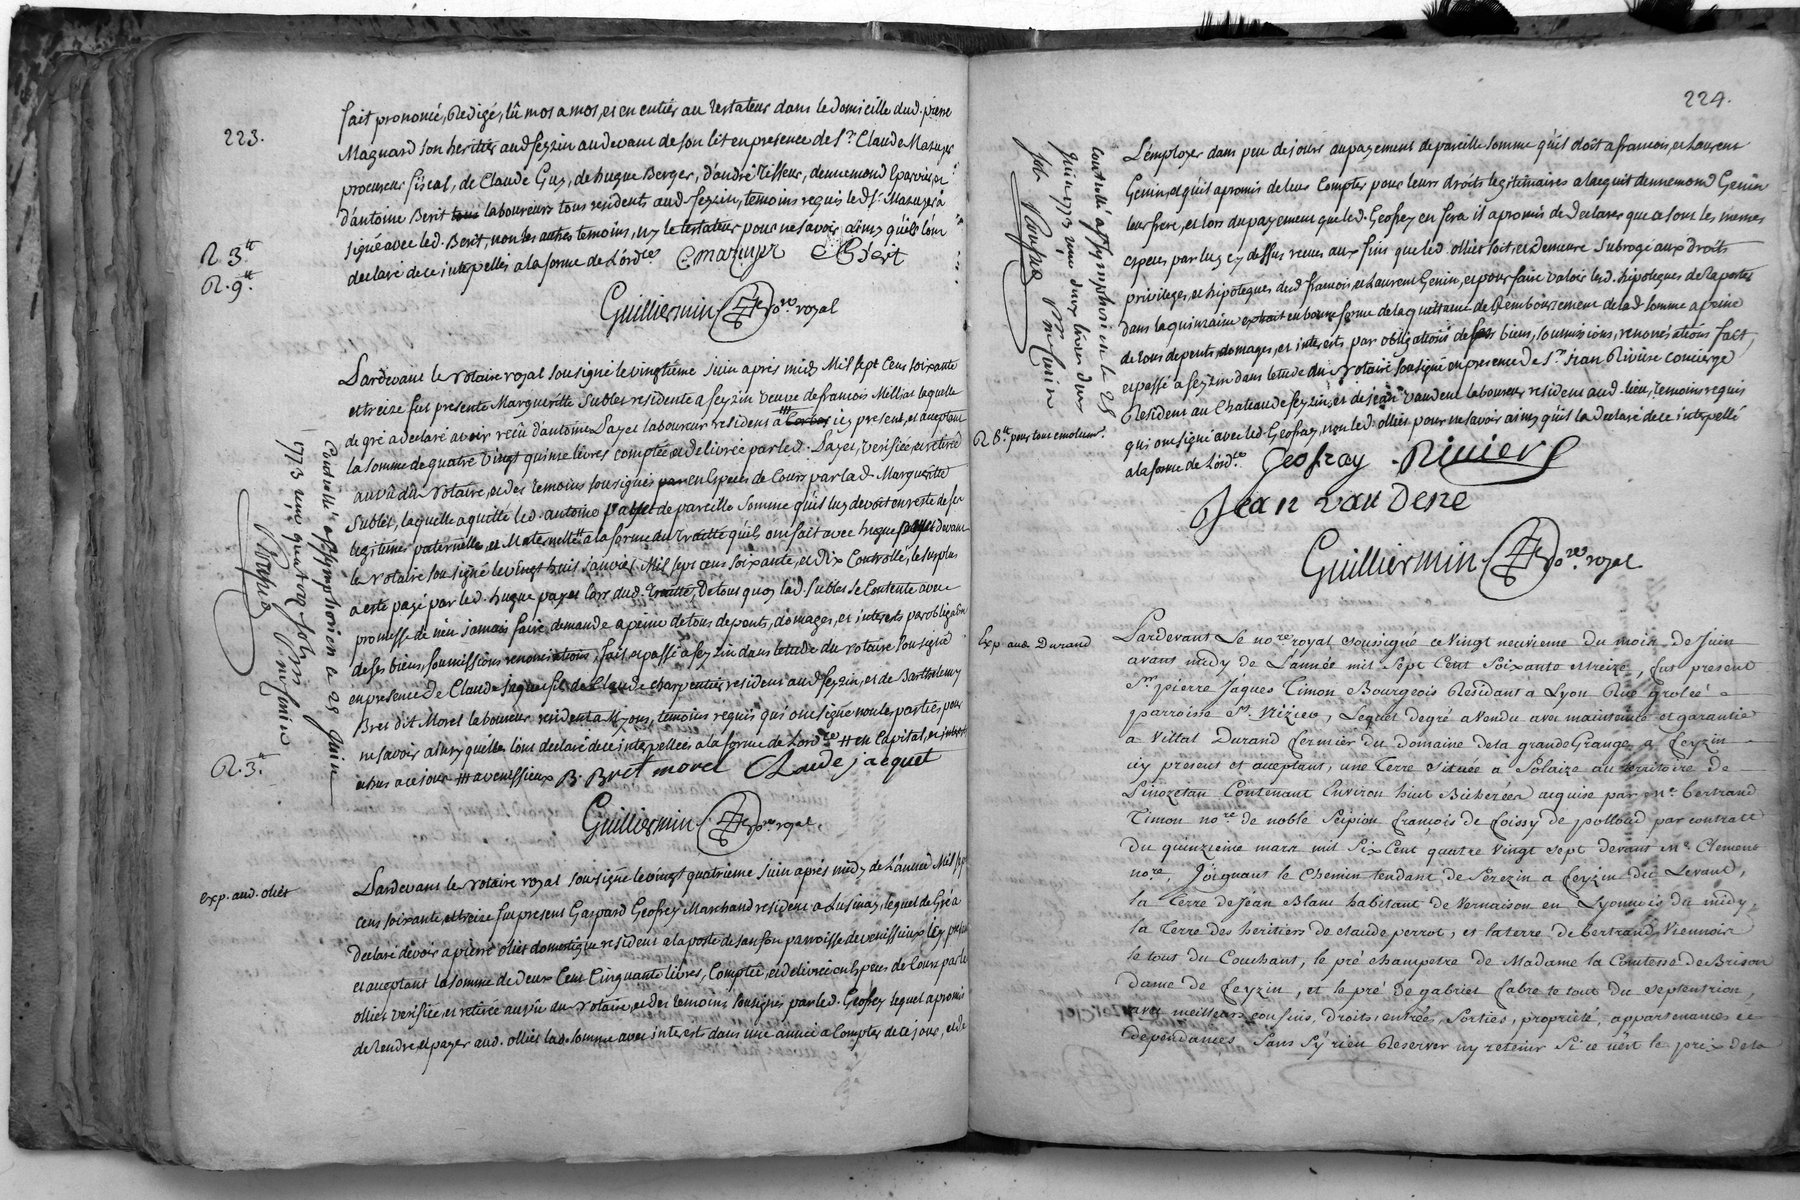 223.
fait prononcé, Redigé, lû mos a mos, et en entier au testateur dans le domicille dud. pierre
Magnard son heritier aud feyzin au devant de son lit en presence de Sr. Claude Mazuyer
procureur fiscal, de Claude Guy, de hugue Berger, d'andré tisseur, dennemond
d'antoine Berit laboureurs tous residents aud feyzin, temoins requis led Sr. Mazuyer a
signé avec led. Berit, non les autres temoins, ny le testateur pour ne savoir ainsy qu'ils l'ont
declaré de ce interpellés a la forme de L'ordce. CMazuyer Berit
R 3.tt
R. 9.tt
Guilliermin Nore royal
Pardevant le Notaire royal sousigné le vingtiême juin après midy Mil sept Cens soixante
et treize fut presente Margueritte Sublet residente a feyzin veuve de francois Millias laquelle
de gré a declaré avoir reçû d'antoine Payet laboureur resident a icy present, et aceptant
la somme de quatre vingt quinze livres comptée et delivrée par led. Payet, verifiée, et retirée
au vû du Notaire, et des temoins sousignés en Especes de Cours par lad. Margueritte
Sublet, laquelle a quitté led. antoine payet de pareille somme qu'il luy devoit en reste de ses
legitimes paternelle, et Maternelle tt a la forme du traitté qu'ils ont fait avec hugue payet devant
le Notaire sousigné le vingt huit janvier Mil sept cens soixante, et Dix Controllé, le surplus
a esté payé par led. hugue payet lors dud. traitté, De tous quoy lad. Sublet se Contente avec
promesse de n'en jamais faire demande a peine de tous depents, domages, et interets par obligãon
de ses biens, soumissions renonciations, fait et passé a feyzin dans letude du Notaire sousigné
en presence de Claude jaquet fils de Claude charpentier resident aud feyzin, et de Barthelemy
Bret dit Morel laboureur resident a Myons, temoins requis qui ont signé non les parties pour
ne savoir ainsy quelles l'ont declaré de ce interpellées, a la forme de Lordce tt en Capital, et interets
echus a ce jour ttt a venissieux B. Bret morel Claude jacquet
R. 3.tt
Controllé a St symphorien ce 28 juin
1773 reçu quatorze sols
Guilliermin Nore royal
exp. aud. olier
Pardevant le Notaire royal sousigné le vingt quatrieme juin après midy de L'année Mil sept
cens soixante, et treize fut present Gaspard Geofrey Marchand resident a Lusinay, lequel de Gré a
Declaré devoir a pierre olier domestique resident a la poste de sanfon parroisse de venissieux icy present
et aceptant la somme de deux Cent Cinquante livres, Comptée, et delivrée en Especes de Cours par led
ollier verifiée, et retirée au vû du Notaire, et des temoins sousignés par led. Geofrey lequel a promis
de Rendre, et payer aud. ollier lad. somme avec interest dans une année a Compter de ce jour, et de
224.
L'employer dans peu de jours au payement de pareille somme qu'il doit a francois, et Laurent
Genin, et qu'il a promis de leur Compter pour leurs droits legitimaires a lacquit dennemond Genin
leur frere, et lors du payement que led. Geofrey en fera il a promis de declarer que ce sont les mêmes
especes par luy cy dessus reçues aux fins que led ollier soit, et demeure subrogé aux droits
privileges, et hipoteques desd francois, et Laurent Genin, et pour faire valoir led. hipoteques de raporter
dans la quinzaine en bonne forme de la quittance de Remboursement de lad somme a peine
de tous depents, domages, et interets, par obligations de ses biens, soumissions, renonciations fait,
et passé a feyzin dans letude du Notaire sousigné en presence de Sr. Jean Riviere concierge
Resident au Chateau de feyzin, et de jean vandene laboureur resident aud. lieu, temoins requis
qui ont signé avec led Geofrey, non led. ollier pour ne savoir ainsy qu'il la declaré de ce interpellé
a la forme de Lordce. Geofray Riviere
Controllé a St symphorien le 28
juin 1773 reçu deux livres deux
sols
R 6.tt pour tous emolumts.
Jean vandene
Guilliermin Nore royal
Exp aud Durand
Pardevant Le nore royal sousigné ce vingt neuvieme du mois de juin
avant midy de L'année mil sept Cent Soixante et treize, fut present
Sr. pierre Jaques Timon Bourgeois Residant a Lyon Rue grolée
parroisse St. Nizier, Lequel de gré a vendu avec maintenüe et garantie
a Vittal Durand fermier du domaine de la grande Grange a feyzin
icy present et aceptant, une Terre située a Solaize au territoire de
Contenant Environ huit Bicherées acquise par Me. bertrand
Timon nore. de noble Scipion françois de foissy de polloud par contratt
Du quinzieme mars mil six Cent quatre vingt sept devant Me. Clement
nore, Joignant le Chemin tendant de Serezin a feyzin du Levant,
la Terre de Jean Blanc habitant de Vernaison en Lyonnois du midy,
la Terre des heritiers de claude perrot, et la terre de bertrand Viennois
le tout du Couchant, le pré champetre de Madame la Comtesse de Brison
Dame de feyzin, et le pré de gabriel fabre le tout du septentrion,
avec meilleurs confins, droits, entrées, sorties, proprieté, appartenances et
dependances sans s'y rien Reserver ny retenir si ce n'est le prix de la